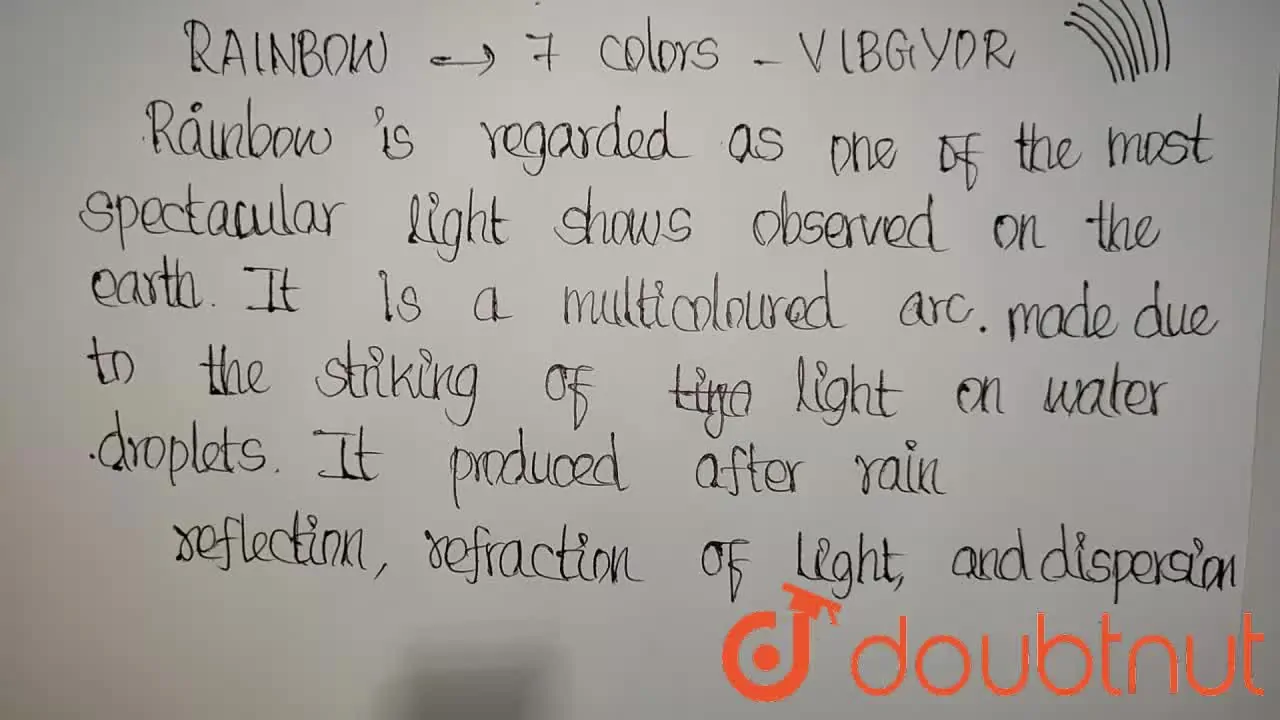 RAINBOW → 7 colors - VIBGYOR
Rainbow is regarded as one of the most
spectacular light shows observed on the
earth. It is a multicoloured arc. made due
to the striking of light on water
droplets. It produced after rain
reflection, refraction of light, and dispersion
doubtnut